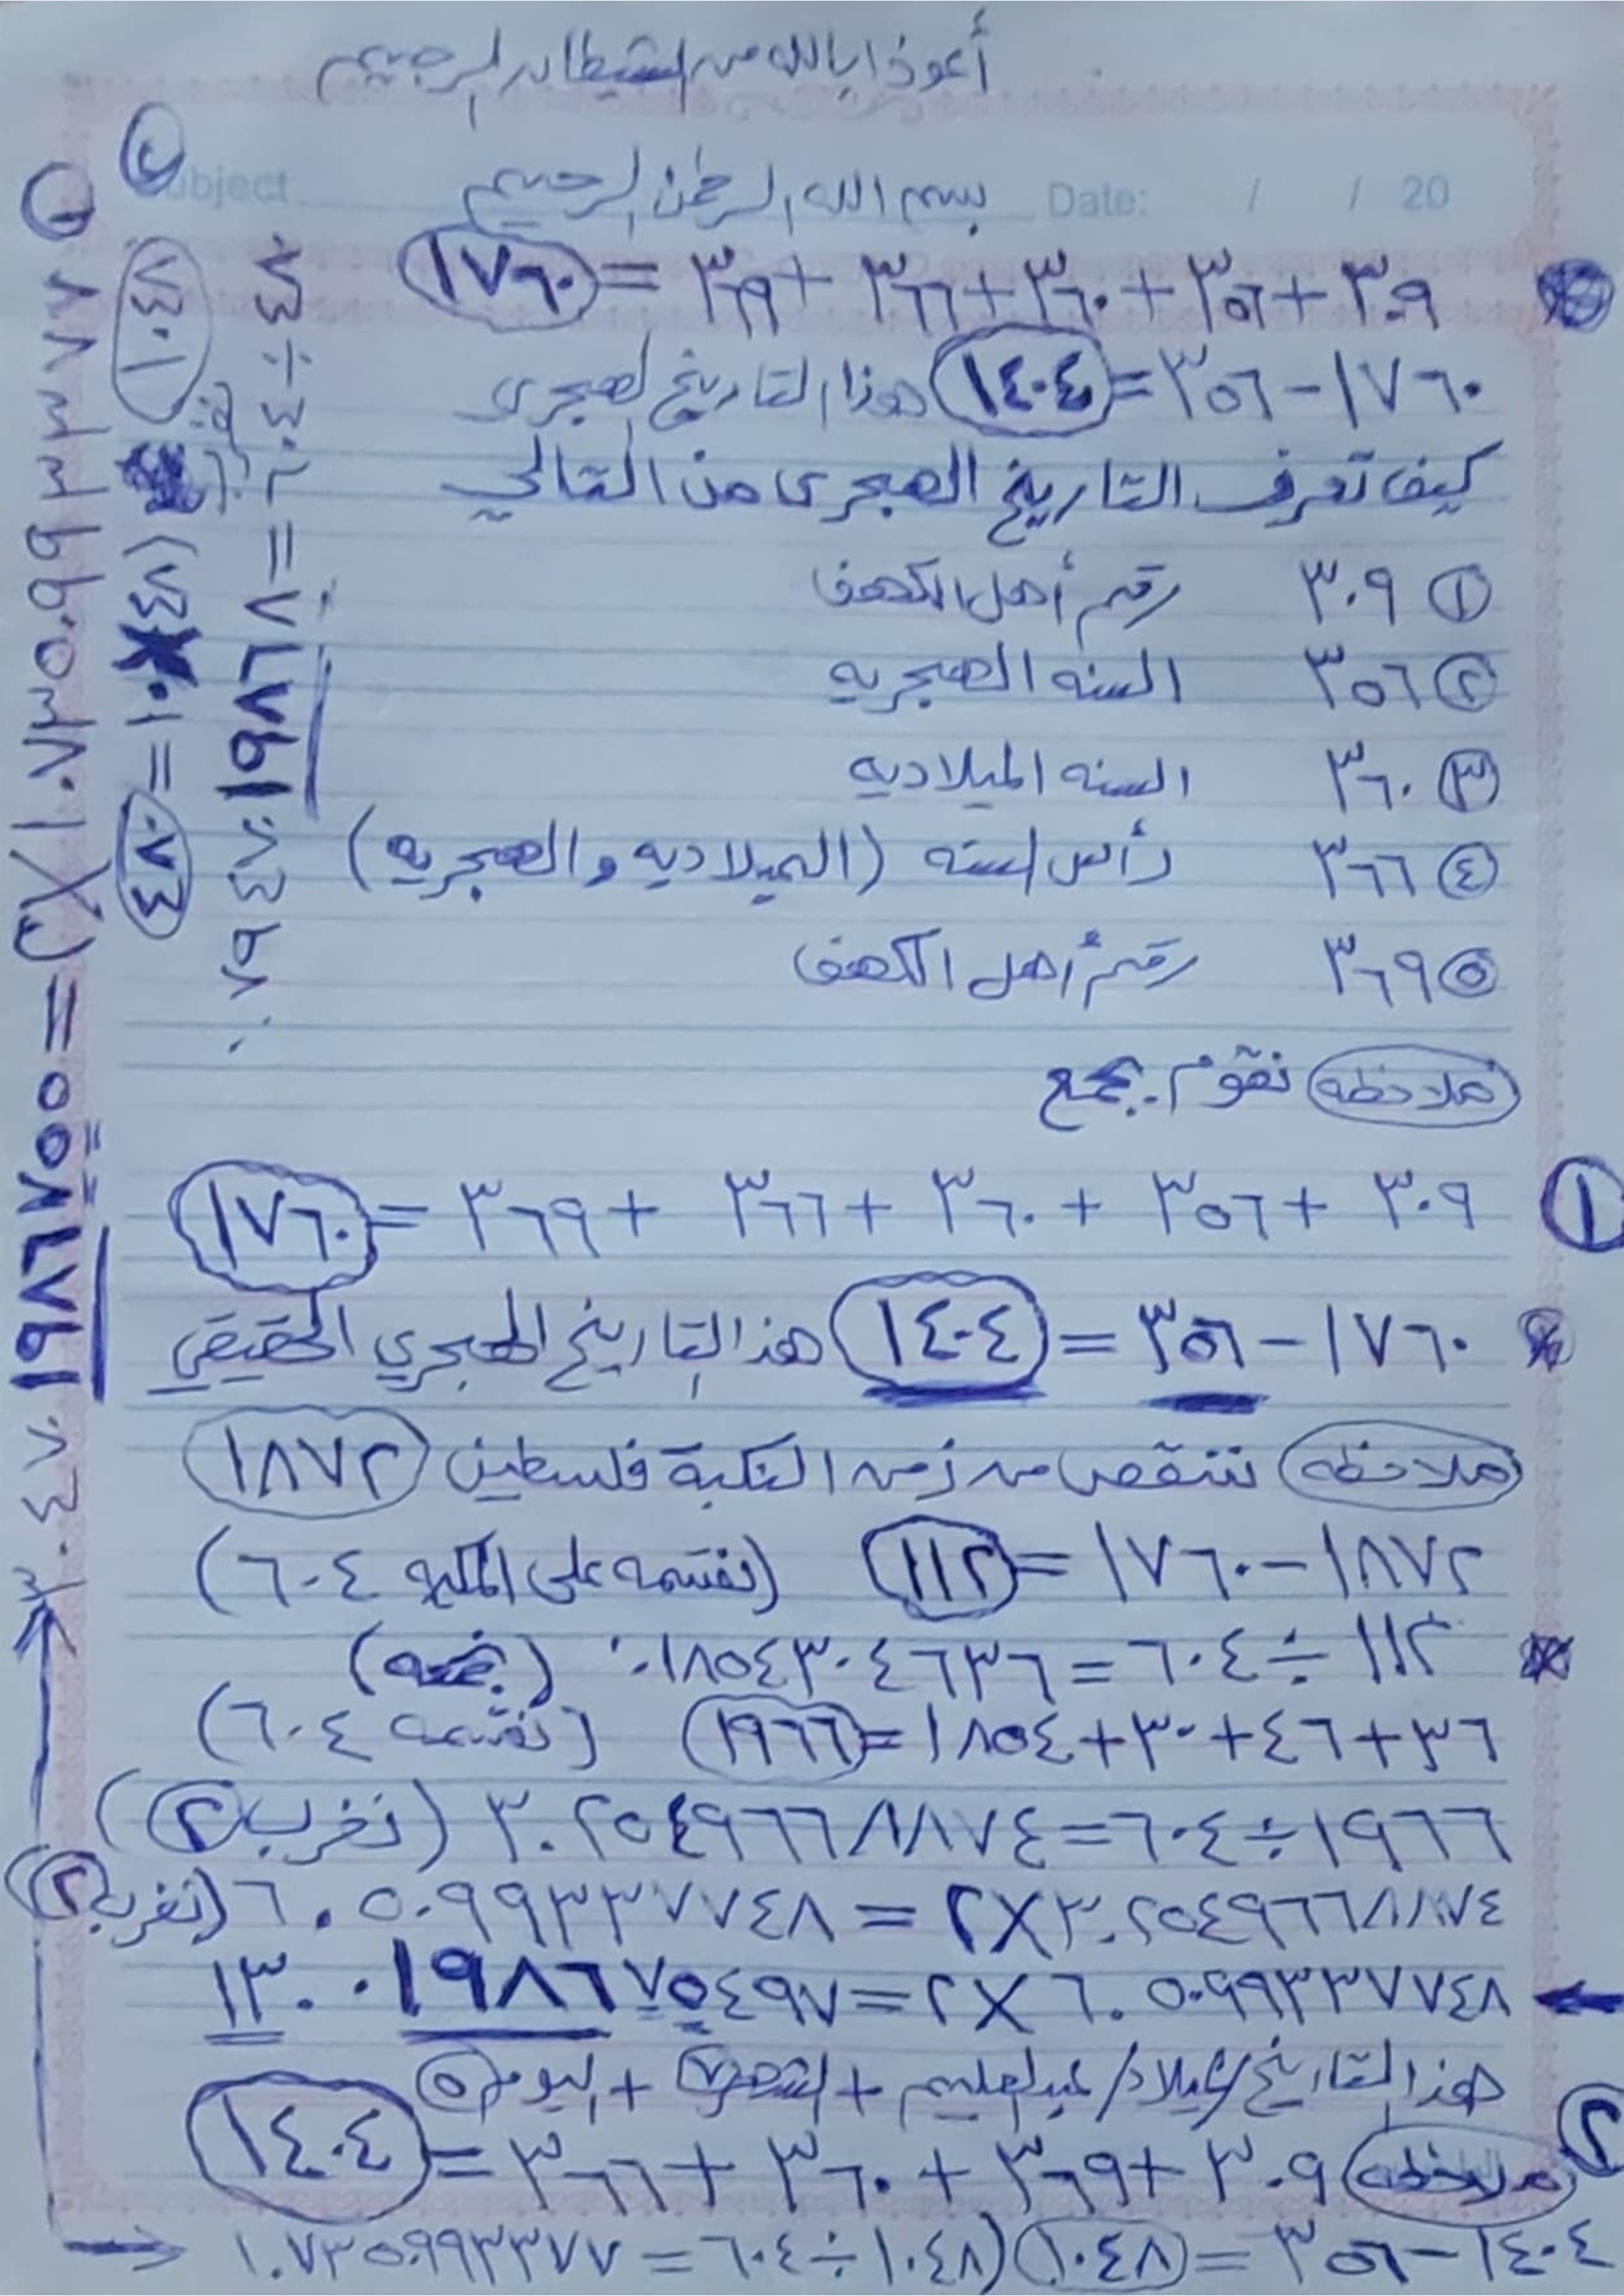 أعوذ بالله من الشيطان الرجيم
Subject Date: / / 20
بسم الله الرحمن الرحيم
٣٠٩ + ٣٥٦ + ٣٦٠ + ٣٦٦ + ٣٦٩ = ١٧٦٠
١٧٦٠ - ٣٥٦ = ١٤٠٤ هذا التاريخ الهجرى
كيف تعرف التاريخ الهجرى من التالي
① ٣٠٩ رقم أهل الكهف
② ٣٥٦ السنه الهجريه
③ ٣٦٠ السنه الميلاديه
④ ٣٦٦ رأس السنه (الميلاديه والهجريه)
⑤ ٣٦٩ رقم أهل الكهف
ملاحظه نقوم بجمع
① ٣٠٩ + ٣٥٦ + ٣٦٠ + ٣٦٦ + ٣٦٩ = ١٧٦٠
١٧٦٠ - ٣٥٦ = ١٤٠٤ هذا التاريخ الهجري الحقيقي
ملاحظه ننقص من زمن النكبة فلسطين ١٨٧٢
١٨٧٢ - ١٧٦٠ = ١١٢ (نقسمه على ٦٠٤)
١١٢ ÷ ٦٠٤ = ٠.١٨٥٤٣٠٤٦٣٦ (نجمعه)
٣٦ + ٤٦ + ٣٠ + ١٨٥٤ = ١٩٦٦ (نقسمه ٦٠٤)
١٩٦٦ ÷ ٦٠٤ = ٣.٢٥٤٩٦٦٨٨٧٤ (نضرب ٢)
٣.٢٥٤٩٦٦٨٨٧٤ X ٢ = ٦.٥٠٩٩٣٣٧٧٤٨ (نضرب ٢)
٦.٥٠٩٩٣٣٧٧٤٨ X ٢ = ١٣.٠١٩٨٦٧٥٤٩٧
هذا التاريخ / ميلاد / عبدالعليم + الشهر ٧ + اليوم ٥
② ملاحظه ٣٠٩ + ٣٦٩ + ٣٦٠ + ٣٦٦ = ١٤٠٤
١٤٠٤ - ٣٥٦ = ١٠٤٨ (١٠٤٨ ÷ ٦٠٤ = ١.٧٣٥٠٩٩٣٣٧٧
① ١.٧٣٥٠٩٩٣٣٧٧ X ٢ = ٣.٤٧٠١٩٨٦٧٥٥
② ١٠٤٧
= ١٠
٤٠٧